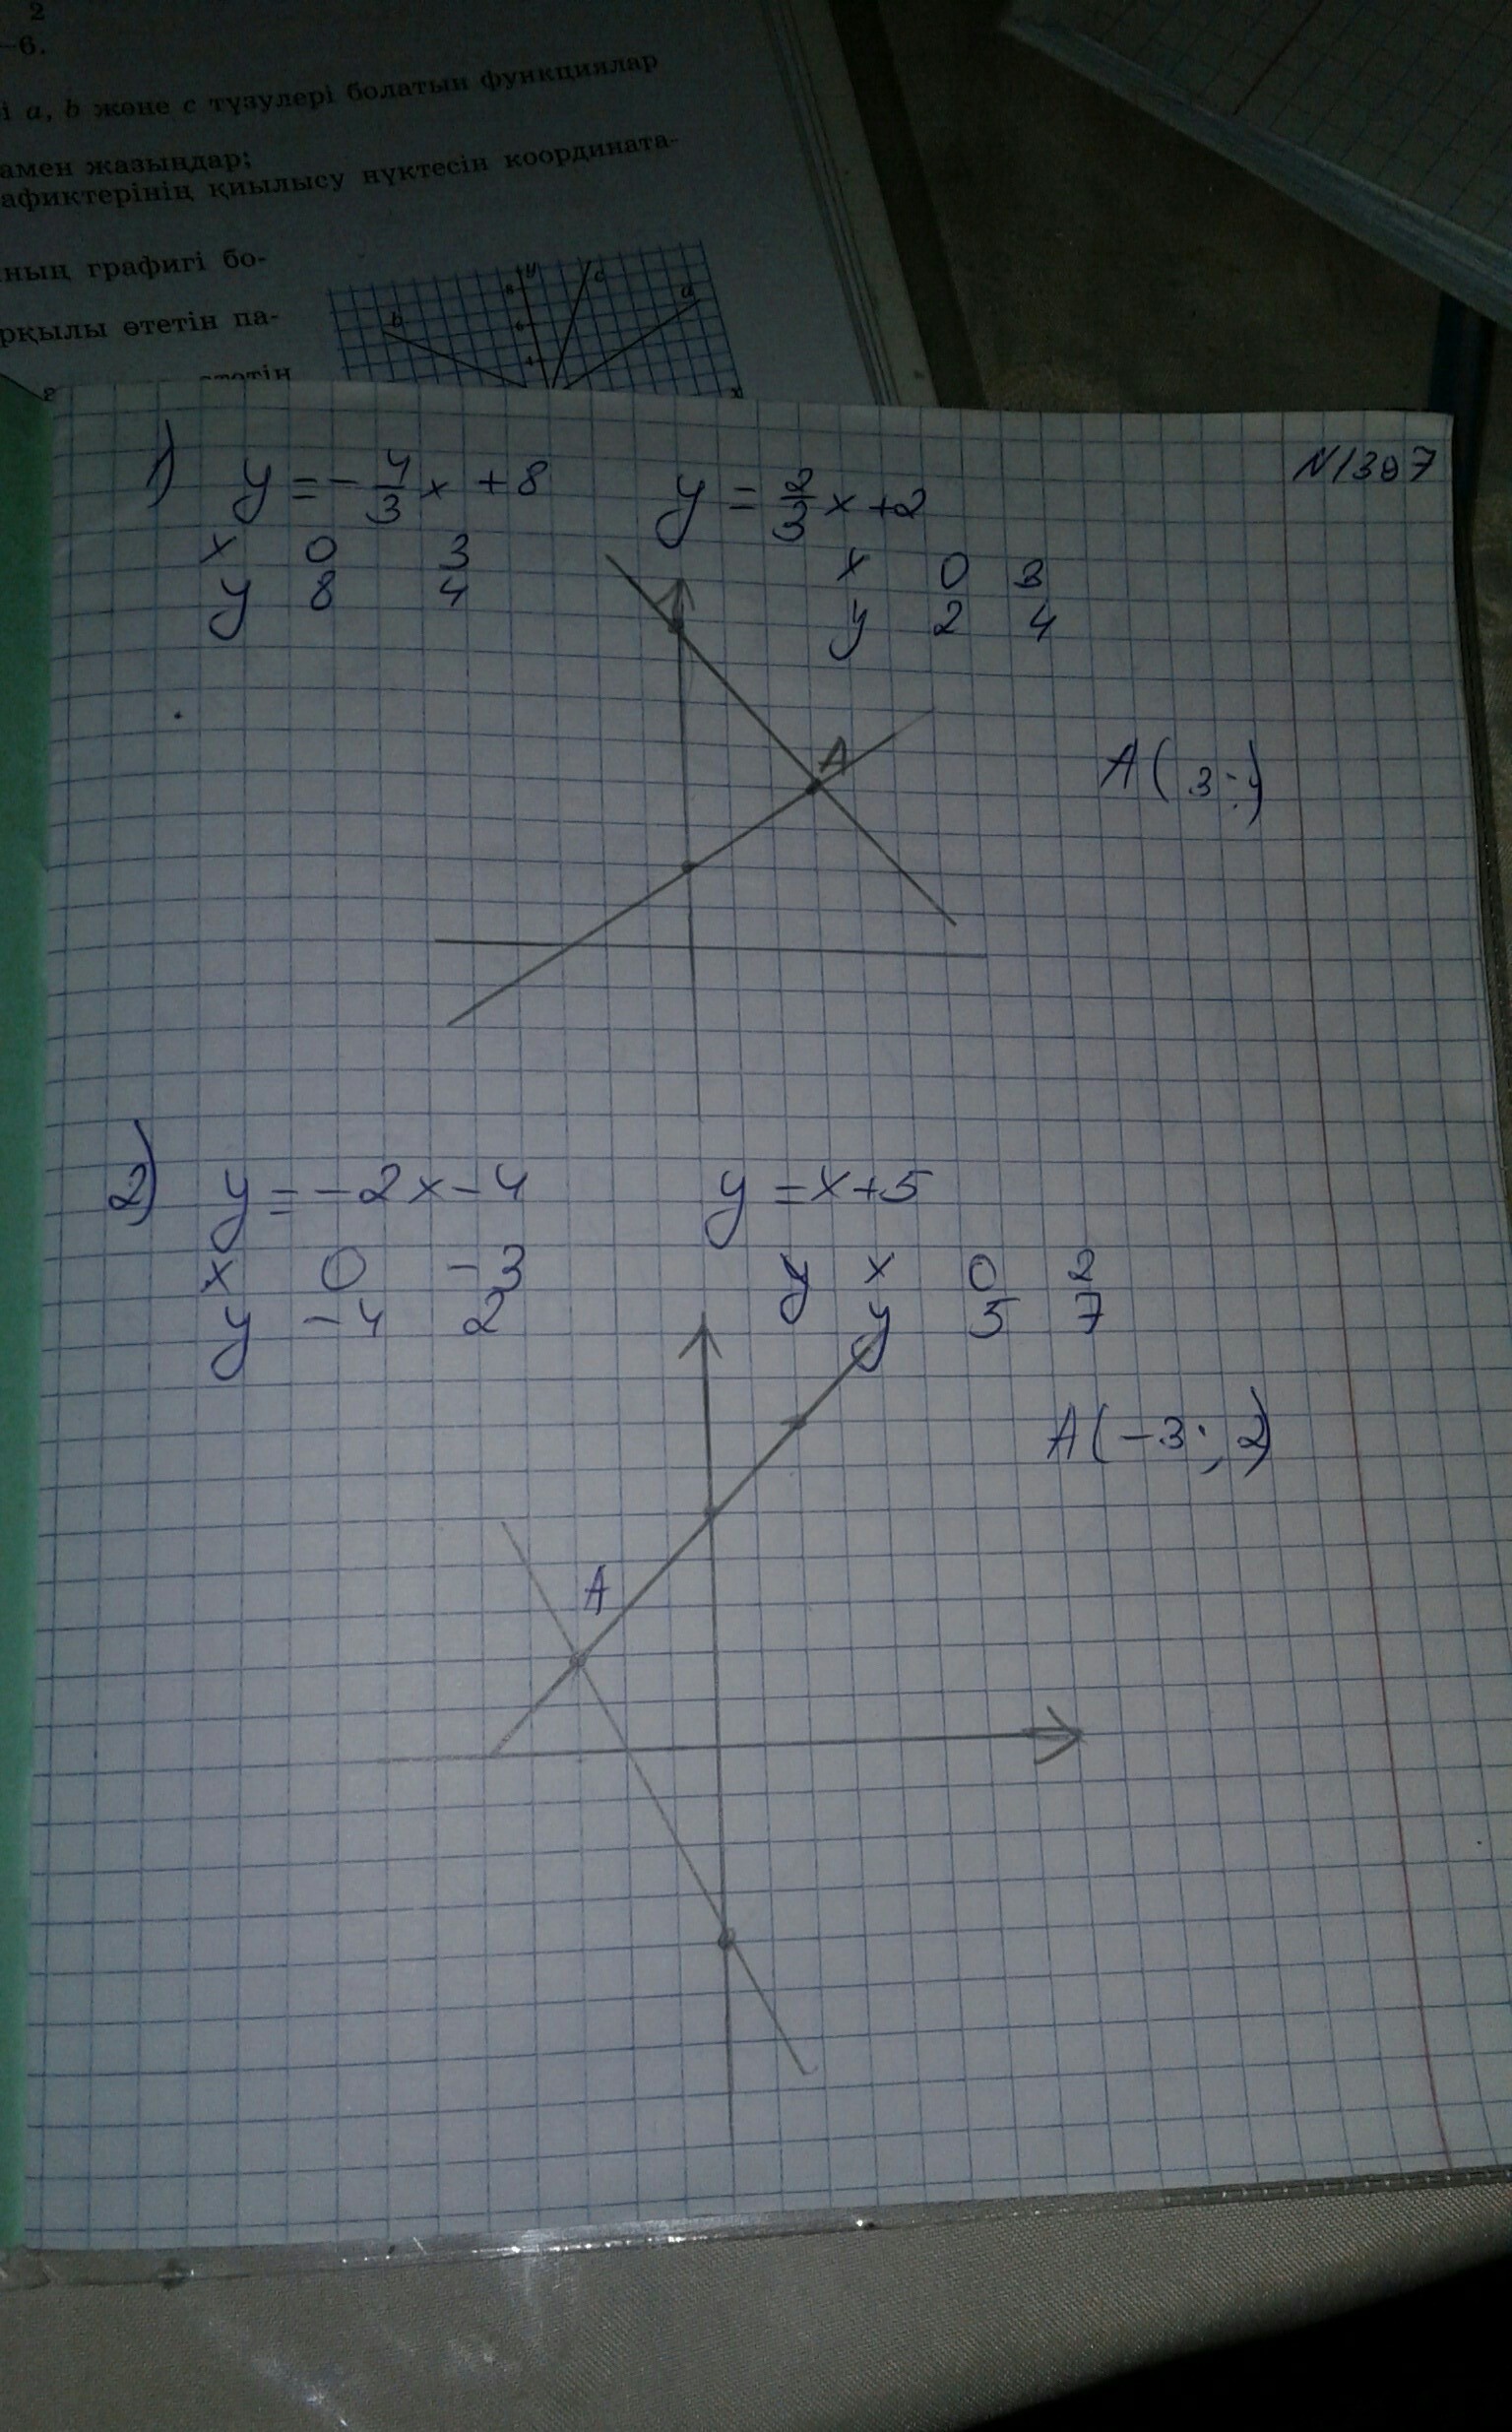 2
–6.
і a, b және c түзулері болатын функциялар
амен жазыңдар;
афиктерінің қиылысу нүктесін координата-
ның графигі бо-
рқылы өтетін па-
етін
y
8
6
4
b
c
a
x
N1307
1) y = -4/3 x + 8
x 0 3
y 8 4
y = 2/3 x + 2
x 0 3
y 2 4
A
A(3;
2) y = -2x - 4
x 0 -3
y -4 2
y = x + 5
y x 0 2
y 5 7
A
A(-3; 2)